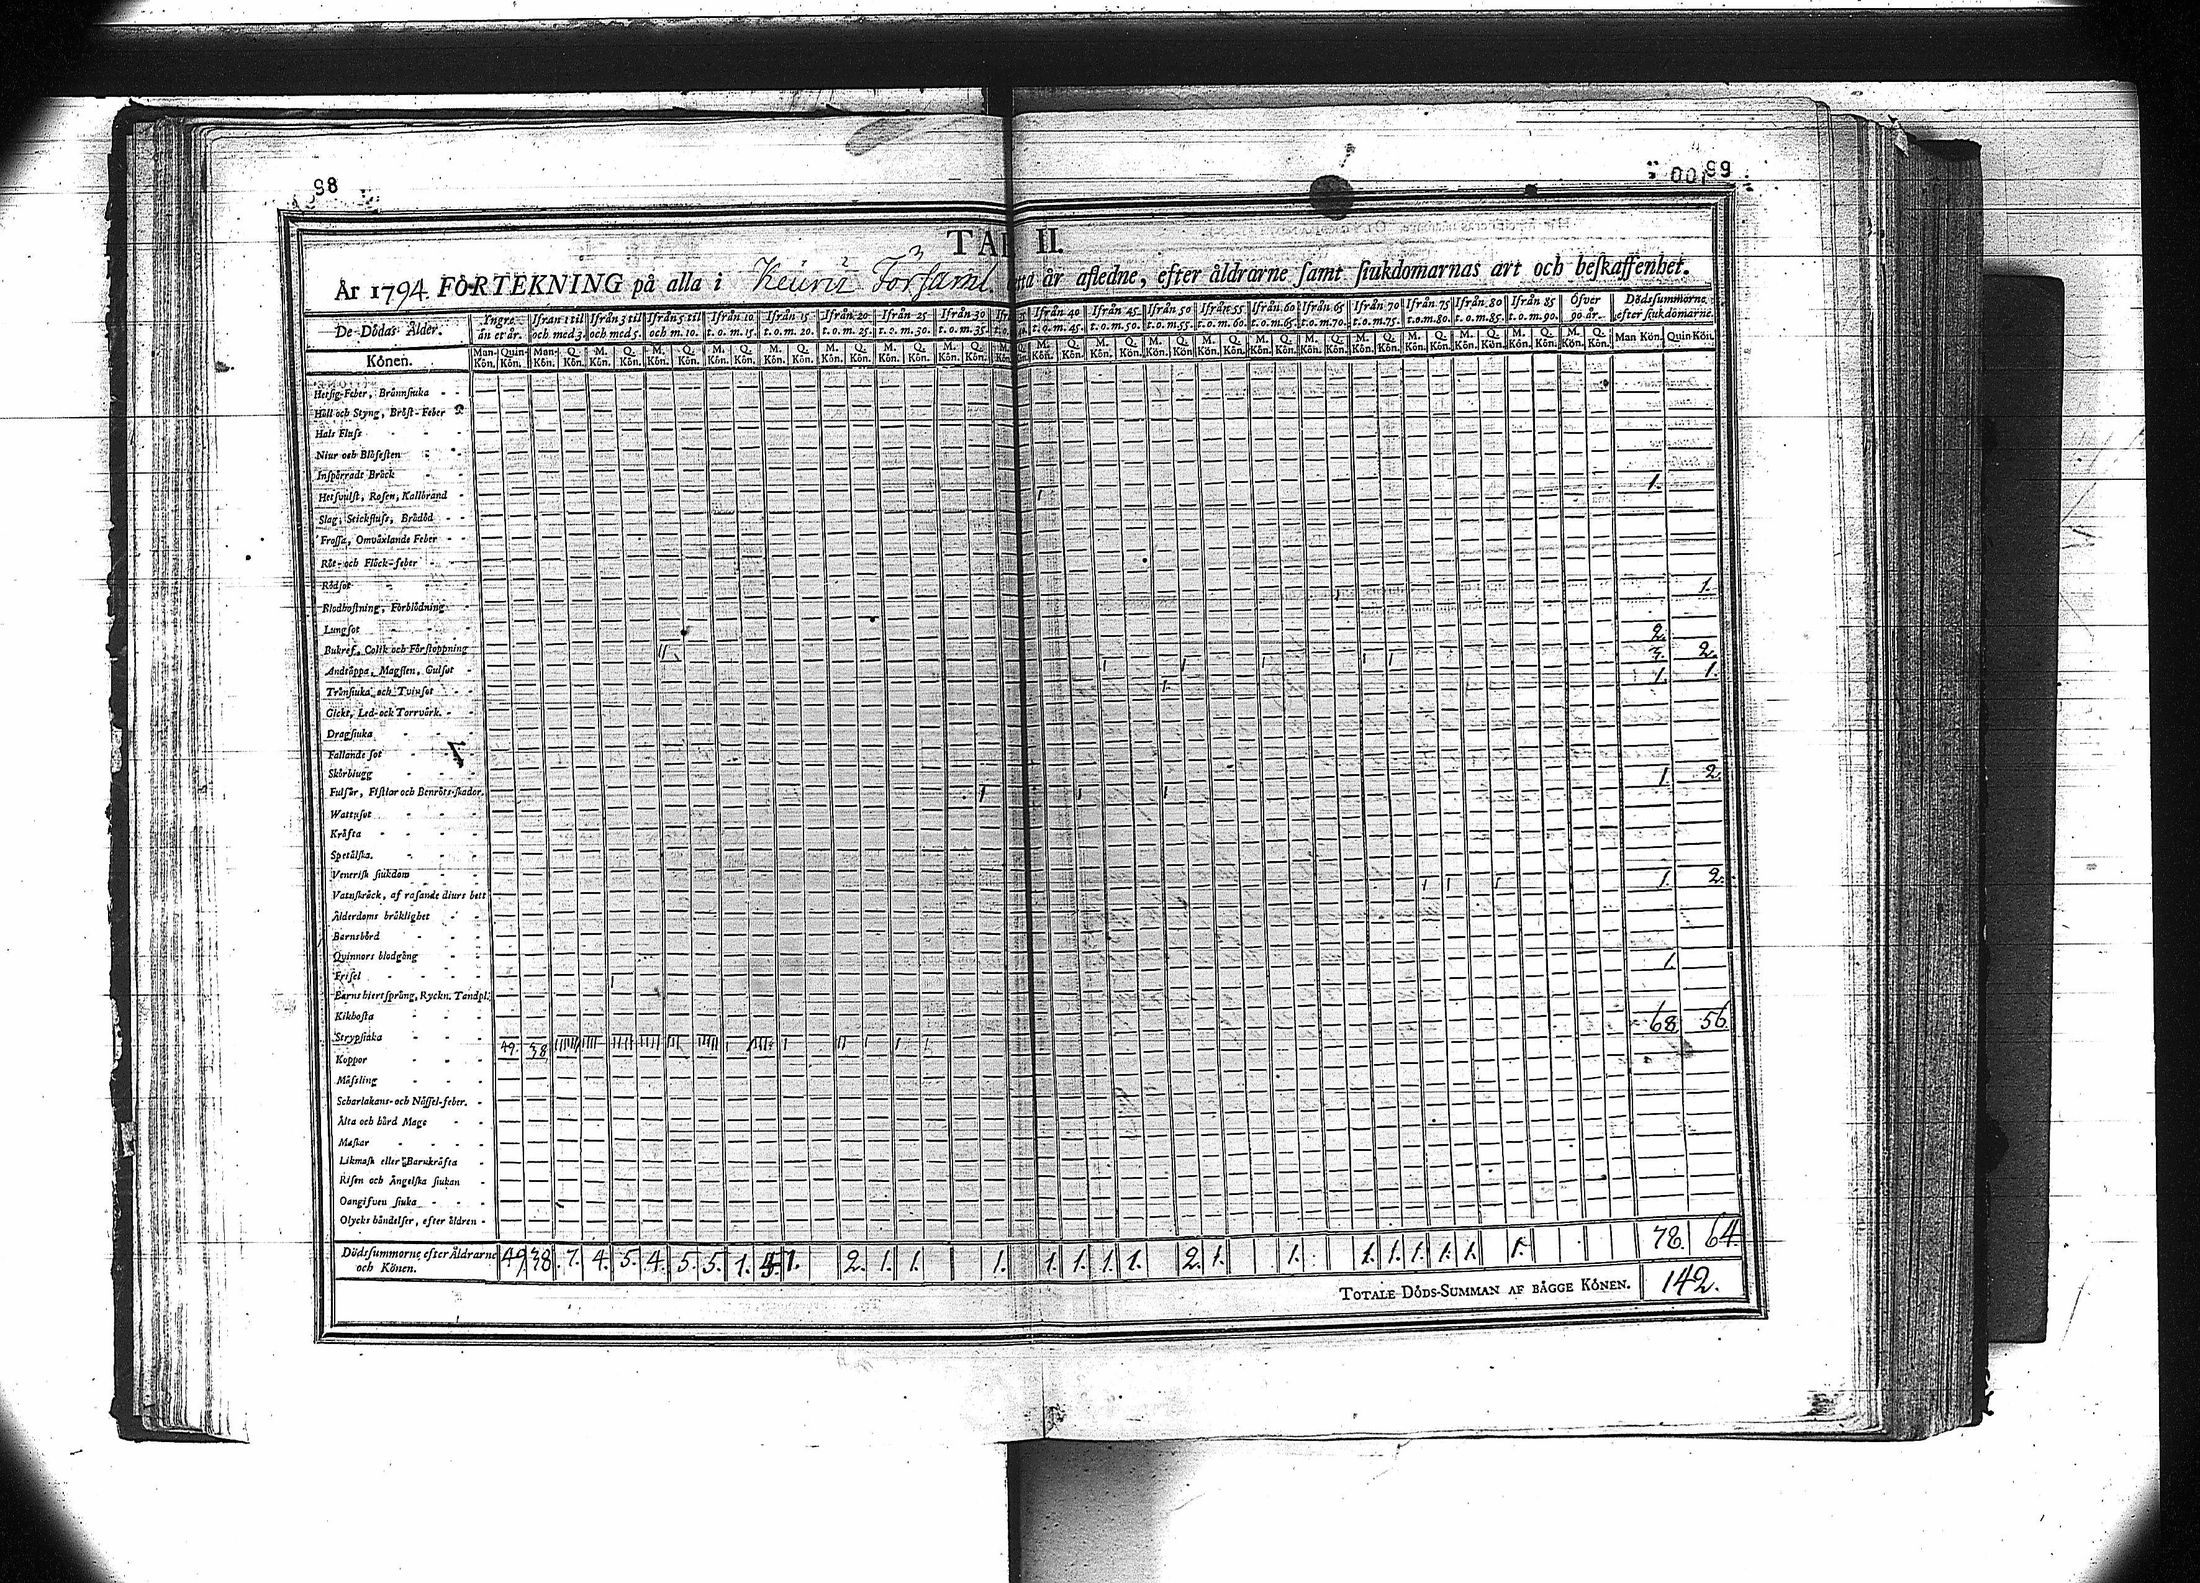 98
99
TAB II.
År 1794 FÖRTEKNING på alla i Keuru Församl detta år afledne, efter åldrarne samt siukdomarnas art och beskaffenhet.
De Dödas Ålder. Ingre än et år. Ifrån 1 til och med 3. Ifrån 3 til och med 5. Ifrån 5 til och m. 10. Ifrån 10 t. o. m. 15. Ifrån 15 t. o. m. 20. Ifrån 20 t. o. m. 25. Ifrån 25 t. o. m. 30. Ifrån 30 t. o. m. 35. Ifrån 40 t. o. m. 45. Ifrån 45 t. o. m. 50. Ifrån 50 t. o. m. 55. Ifrån 55 t. o. m. 60. Ifrån 60 t. o. m. 65. Ifrån 65 t. o. m. 70. Ifrån 70 t. o. m. 75. Ifrån 75 t. o. m. 80. Ifrån 80 t. o. m. 85. Ifrån 85 t. o. m. 90. Öfver 90 år. Dödssummorne efter siukdomarne.
Könen. Man Kön. Quin Kön. Man Kön. Q. Kön. M. Kön. Q. Kön. M. Kön. Q. Kön. M. Kön. Q. Kön. M. Kön. Q. Kön. M. Kön. Q. Kön. M. Kön. Q. Kön. M. Kön. Q. Kön. M. Kön. Q. Kön. M. Kön. Q. Kön. M. Kön. Q. Kön. M. Kön. Q. Kön. M. Kön. Q. Kön. M. Kön. Q. Kön. M. Kön. Q. Kön. M. Kön. Q. Kön. M. Kön. Q. Kön. M. Kön. Q. Kön. M. Kön. Q. Kön. M. Kön. Q. Kön. Man Kön. Quin Kön.
Hetsig-Feber, Brännsiuka
Håll och Styng, Bröst-Feber
Hals Fluss
Niur och Blåsesten
Inspärrade Bråck
Hetsvulst, Rosen, Kallbrand 1 1.
Slag, Stickfluss, Brådöd
Frossa, Omväxlande Feber
Röt- och Fläck-feber
Rödsot 1.
Blodhostning, Förblödning
Lungsot 2.
Bukref, Colik och Förstoppning II 3. 2.
Andtäppa, Magsten, Gulsot 1 1 1 1 1 1. 1.
Trånsiuka och Tvinsot 1.
Gickt, Led- och Torrvärk.
Dragsiuka
Fallande sot
Skörbiugg 1. 2.
Fulsår, Fistlar och Benröts-skador. 1 1 1
Wattusot
Kräfta
Spetälska.
Venerisk siukdom
Vattuskräck, af rasande diurs bett 1 1 1 1. 2.
Ålderdoms bräklighet
Barnsbörd
Quinnors blodgång
Frisel 1 1.
Barns hiertsprång, Ryckn. Tandpl.
Kikhosta
Strypsiuka 68 56.
Koppor 49. 38
Mässling
Scharlakans- och Nässel-feber.
Älta och hård Mage
Maskar
Likmask eller Barnkräfta
Risen och Ängelska siukan
Oangifven siuka
Olycks händelser, efter åldren
Dödssummorne efter Åldrarne och Könen. 49 38. 7. 4. 5. 4. 5. 5. 1. 4. 1. 2. 1. 1. 1. 1. 1. 1. 1. 2. 1. 1. 1. 1. 1. 1. 1. 1. 78. 64.
TOTALE DÖDS-SUMMAN AF BÄGGE KÖNEN. 142.